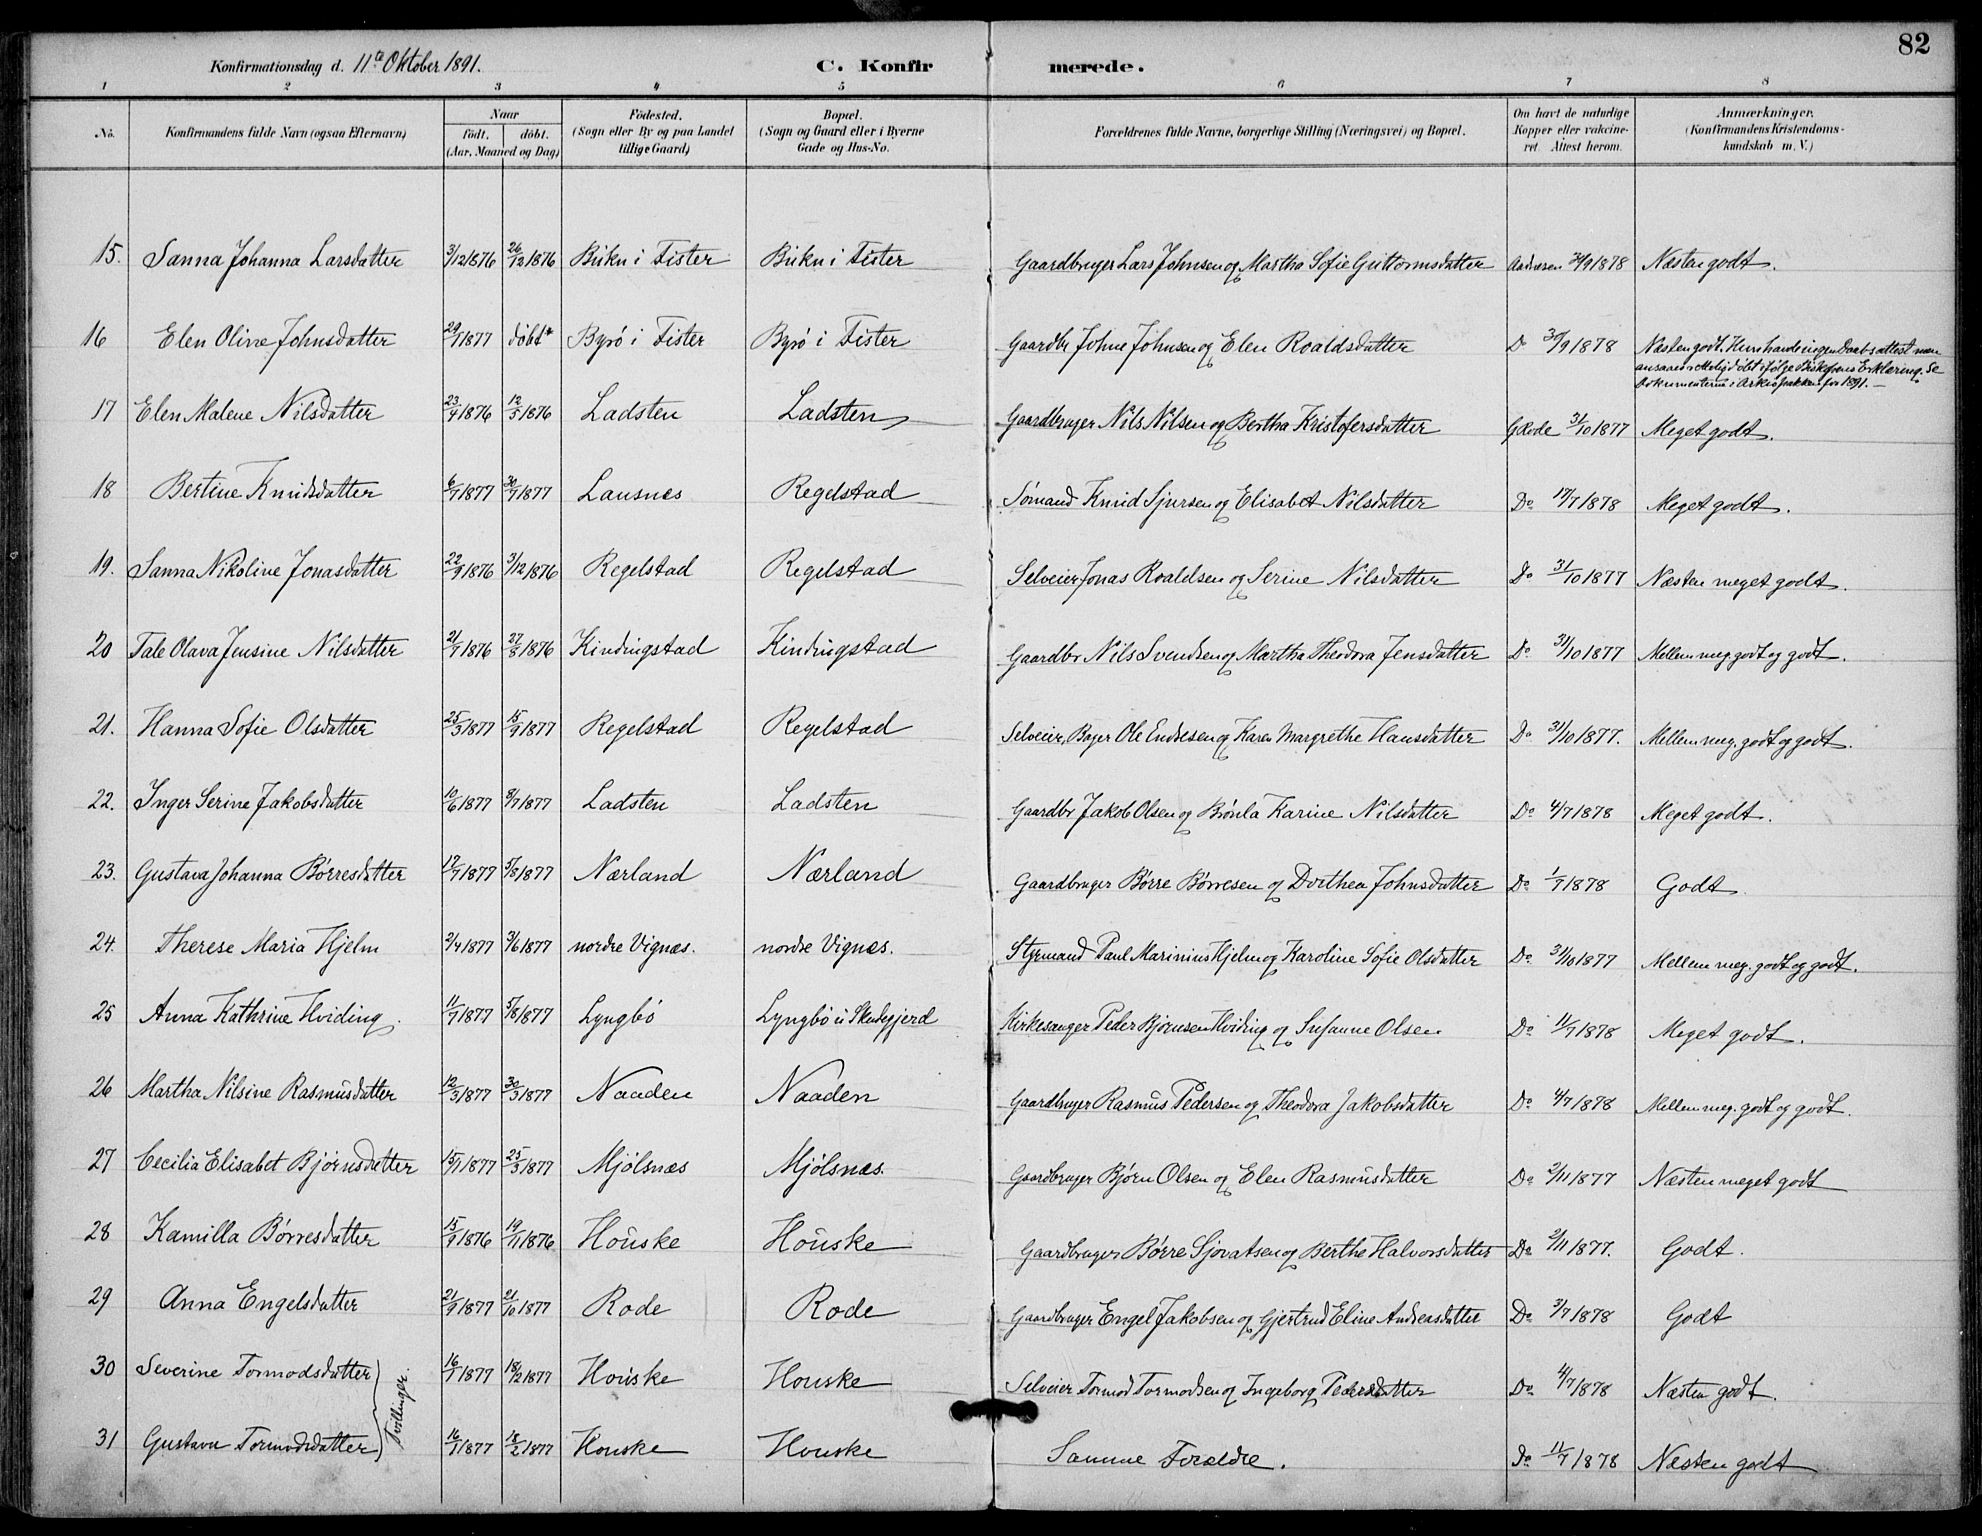 82
Konfirmationsdag d. 11te Oktober 1891. C. Konfirmerede.
1 2 3 4 5 6 7 8
No. Konfirmandens fulde Navn (ogsaa Efternavn) Naar födt. döbt. (Aar, Maaned og Dag) Födested. (Sogn eller By og paa Landet tillige Gaard) Bopæl. (Sogn og Gaard eller i Byerne Gade og Hus-No. Forældrenes fulde Navne, borgerlige Stilling (Næringsvei) og Bopæl. Om havt de naturlige Kopper eller vakcineret. Attest herom. Anmærkninger. (Konfirmandens Kristendomskundskab m. V.)
15. Sanna Johanna Larsdatter 3/12 1876 26/12 1876 Birkn i Fister Birkn i Fister Gaardbruger Lars Johnsen og Martha Sofie Guttormsdatter /9 1878 Næsten godt.
16 Elen Oline Johnsdatter 29/1 1877 döbt* Byrö i Fister Byrö i Fister Gaardbr Johne Johnsen og Elen Roaldsdatter Do 30/9 1878 Næsten godt. Hun havde ingen Daabsattest men
ansaaes rettelig döbt ifölge Biskopens Erklæring. Se
Dokumenterne i Arkivpakken for 1891.—
17 Elen Malene Nilsdatter 23/4 1876 12/5 1876 Ladsten Ladsten Gaardbruger Nils Nilsen og Bertha Kristofersdatter G Rode 31/10 1877 Meget godt.
18 Bertine Knudsdatter 6/7 1877 30/7 1877 Lausnes Regelstad Sömand Knud Sjursen og Elisabet Nilsdatter Do 17/7 1878 Meget godt.
19. Sanna Nikoline Jonasdatter 22/9 1876 3/12 1876 Regelstad Regelstad Selveier Jonas Roaldsen og Serine Nilsdatter Do 31/10 1877 Næsten meget godt.
20 Tale Olava Jensine Nilsdatter 21/7 1876 27/8 1876 Kindingstad Kindingstad Gaardbr Nils Svendsen og Martha Theodora Jensdatter Do 31/10 1877 Mellem meg. godt og godt.
21. Hanna Sofie Olsdatter 25/3 1877 15/9 1877 Regelstad Regelstad Selveier, Bager Ole Endresen og Karen Margrethe Hansdatter Do 31/10 1877. Mellem meg. godt og godt.
22. Inger Serine Jakobsdatter 10/6 1877 8/7 1877 Ladsten Ladsten Gaardbr Jakob Olsen og Brönla Karine Nilsdatter Do 4/7 1878 Meget godt.
23. Gustava Johanna Börresdatter 17/7 1877 5/8 1877 Nærland Nærland Gaardbruger Börre Börresen og Dorthea Johnsdatter Do 1/7 1878 Godt.
24. Therese Maria Hjelm 2/4 1877 3/6 1877 nordre Vignæs. nordre Vignæs. Styrmand Paul Marinius Hjelm og Karoline Sofie Olsdatter Do 31/10 1877 Mellem meg. godt og godt.
25 Anna Kathrine Hviding. 11/7 1877 5/8 1877 Lyngbö Lyngbö i Kirkesanger Peder Björnsen Hviding og Susanne Olsen Do 11/7 1878 Meget godt.
26 Martha Nilsine Rasmusdatter 12/3 1877 30/3 1877 Naaden Naaden Gaardbruger Rasmus Pedersen og Theodora Jakobsdatter Do 4/7 1878 Mellem meg. godt og godt.
27 Cecilia Elisabet Björnsdatter 15/1 1877 25/3 1877 Mjölsnæs Mjölsnæs. Gaardbruger Björn Olsen og Elen Rasmusdatter Do 2/11 1877 Næsten meget godt
28 Kamilla Börresdatter 15/9 1876 19/11 1876 Houske Houske Gaardbruger Börre Sjovatsen og Berthe Halvorsdatter Do 2/11 1877. Godt.
29 Anna Engelsdatter 21/9 1877 21/10 1877 Rode Rode Gaardbruger Engel Jakobsen og Gjertrud Eline Andreasdatter Do 3/7 1878 Godt
30 Severine Tormodsdatter 16/1 1877 18/2 1877 Houske Houske Selveier Tormod Tormodsen og Ingeborg Pedersdatter Do 4/7 1878 Næsten godt.
Tvillinger.
31 Gustava Tormodsdatter 16/1 1877 18/2 1877 Houske Houske Samme Foraldre. Do 11/7 1878 Næsten godt